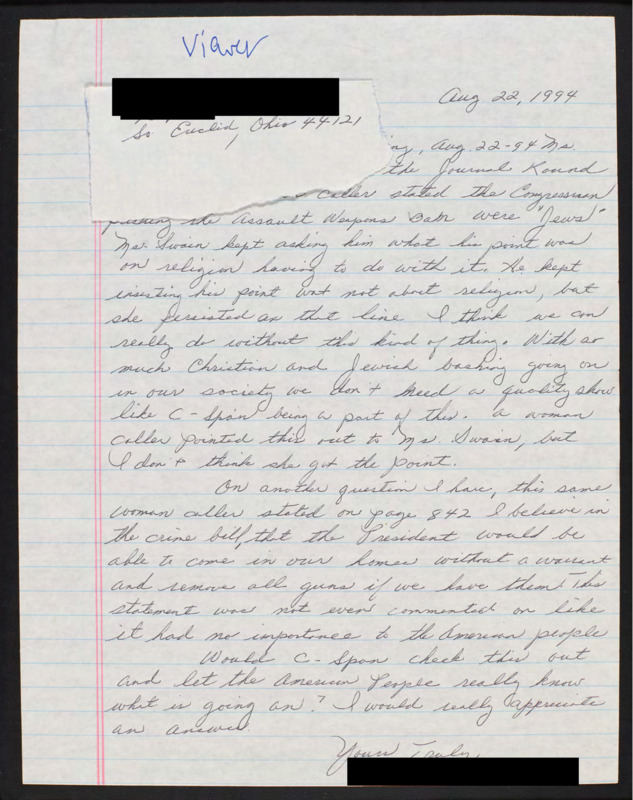 Viewer
Aug 22, 1994
So. Euclid, Ohio 44121
ng, Aug. 22-94 Ms.
the Journal Round
caller stated the Congressman
pushing the Assault Weapons Ban were "Jews"
Ms. Swain kept asking him what his point was
on religion having to do with it. He kept
inserting his point was not about religion, but
she persisted on that line I think we can
really do without this kind of thing. With so
much Christian and Jewish bashing going on
in our society we don't need a quality show
like C-Span being a part of this. A woman
caller pointed this out to Ms. Swain, but
I don't think she got the point.
On another question I have, this same
woman caller stated on page 842 I believe in
the crime bill, that the President would be
able to come in our homes without a warrant
and remove all guns if we have them! This
statement was not even commented on like
it had no importance to the American people
Would C-Span check this out
and let the American People really know
what is going on? I would really appreciate
an answer.
Yours Truly,